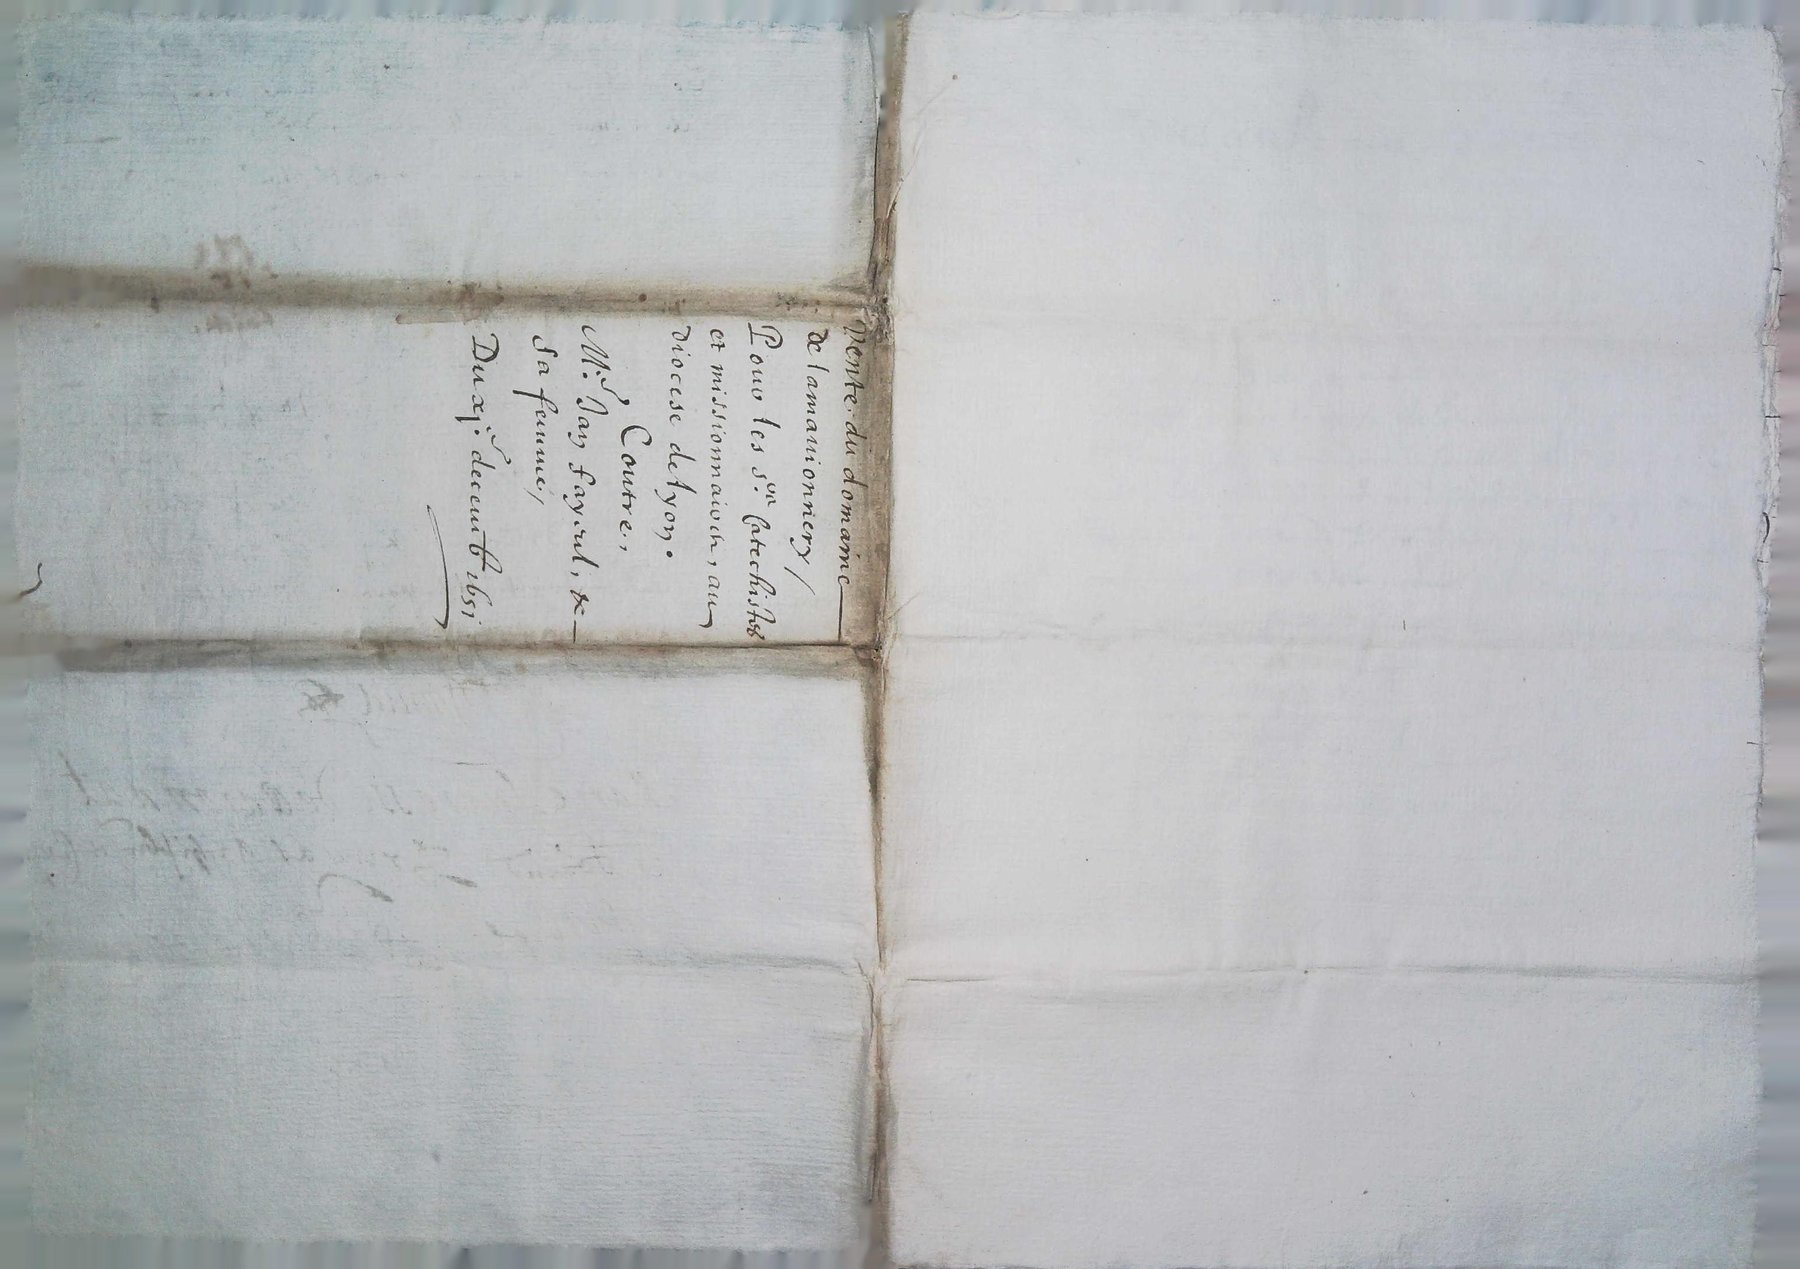 Vente du domaine
de lamarionnery /
Pour les Srs Catechistes
et missionnaires, au
diocese de lyon.
Contre,
Mr. Jay fayeul, &
sa femme,
Du xje. decemb. 1651